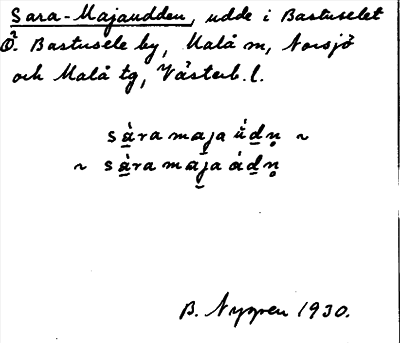 Sara-Majaudden, udde i Bastuselet
Ö. Bastusele by, Malå sn, Norsjö
och Malå tg, Västerb. l.
sàra maja ùdn̥ ~
~ sàra maja ádn̥
B. Nygren 1930.